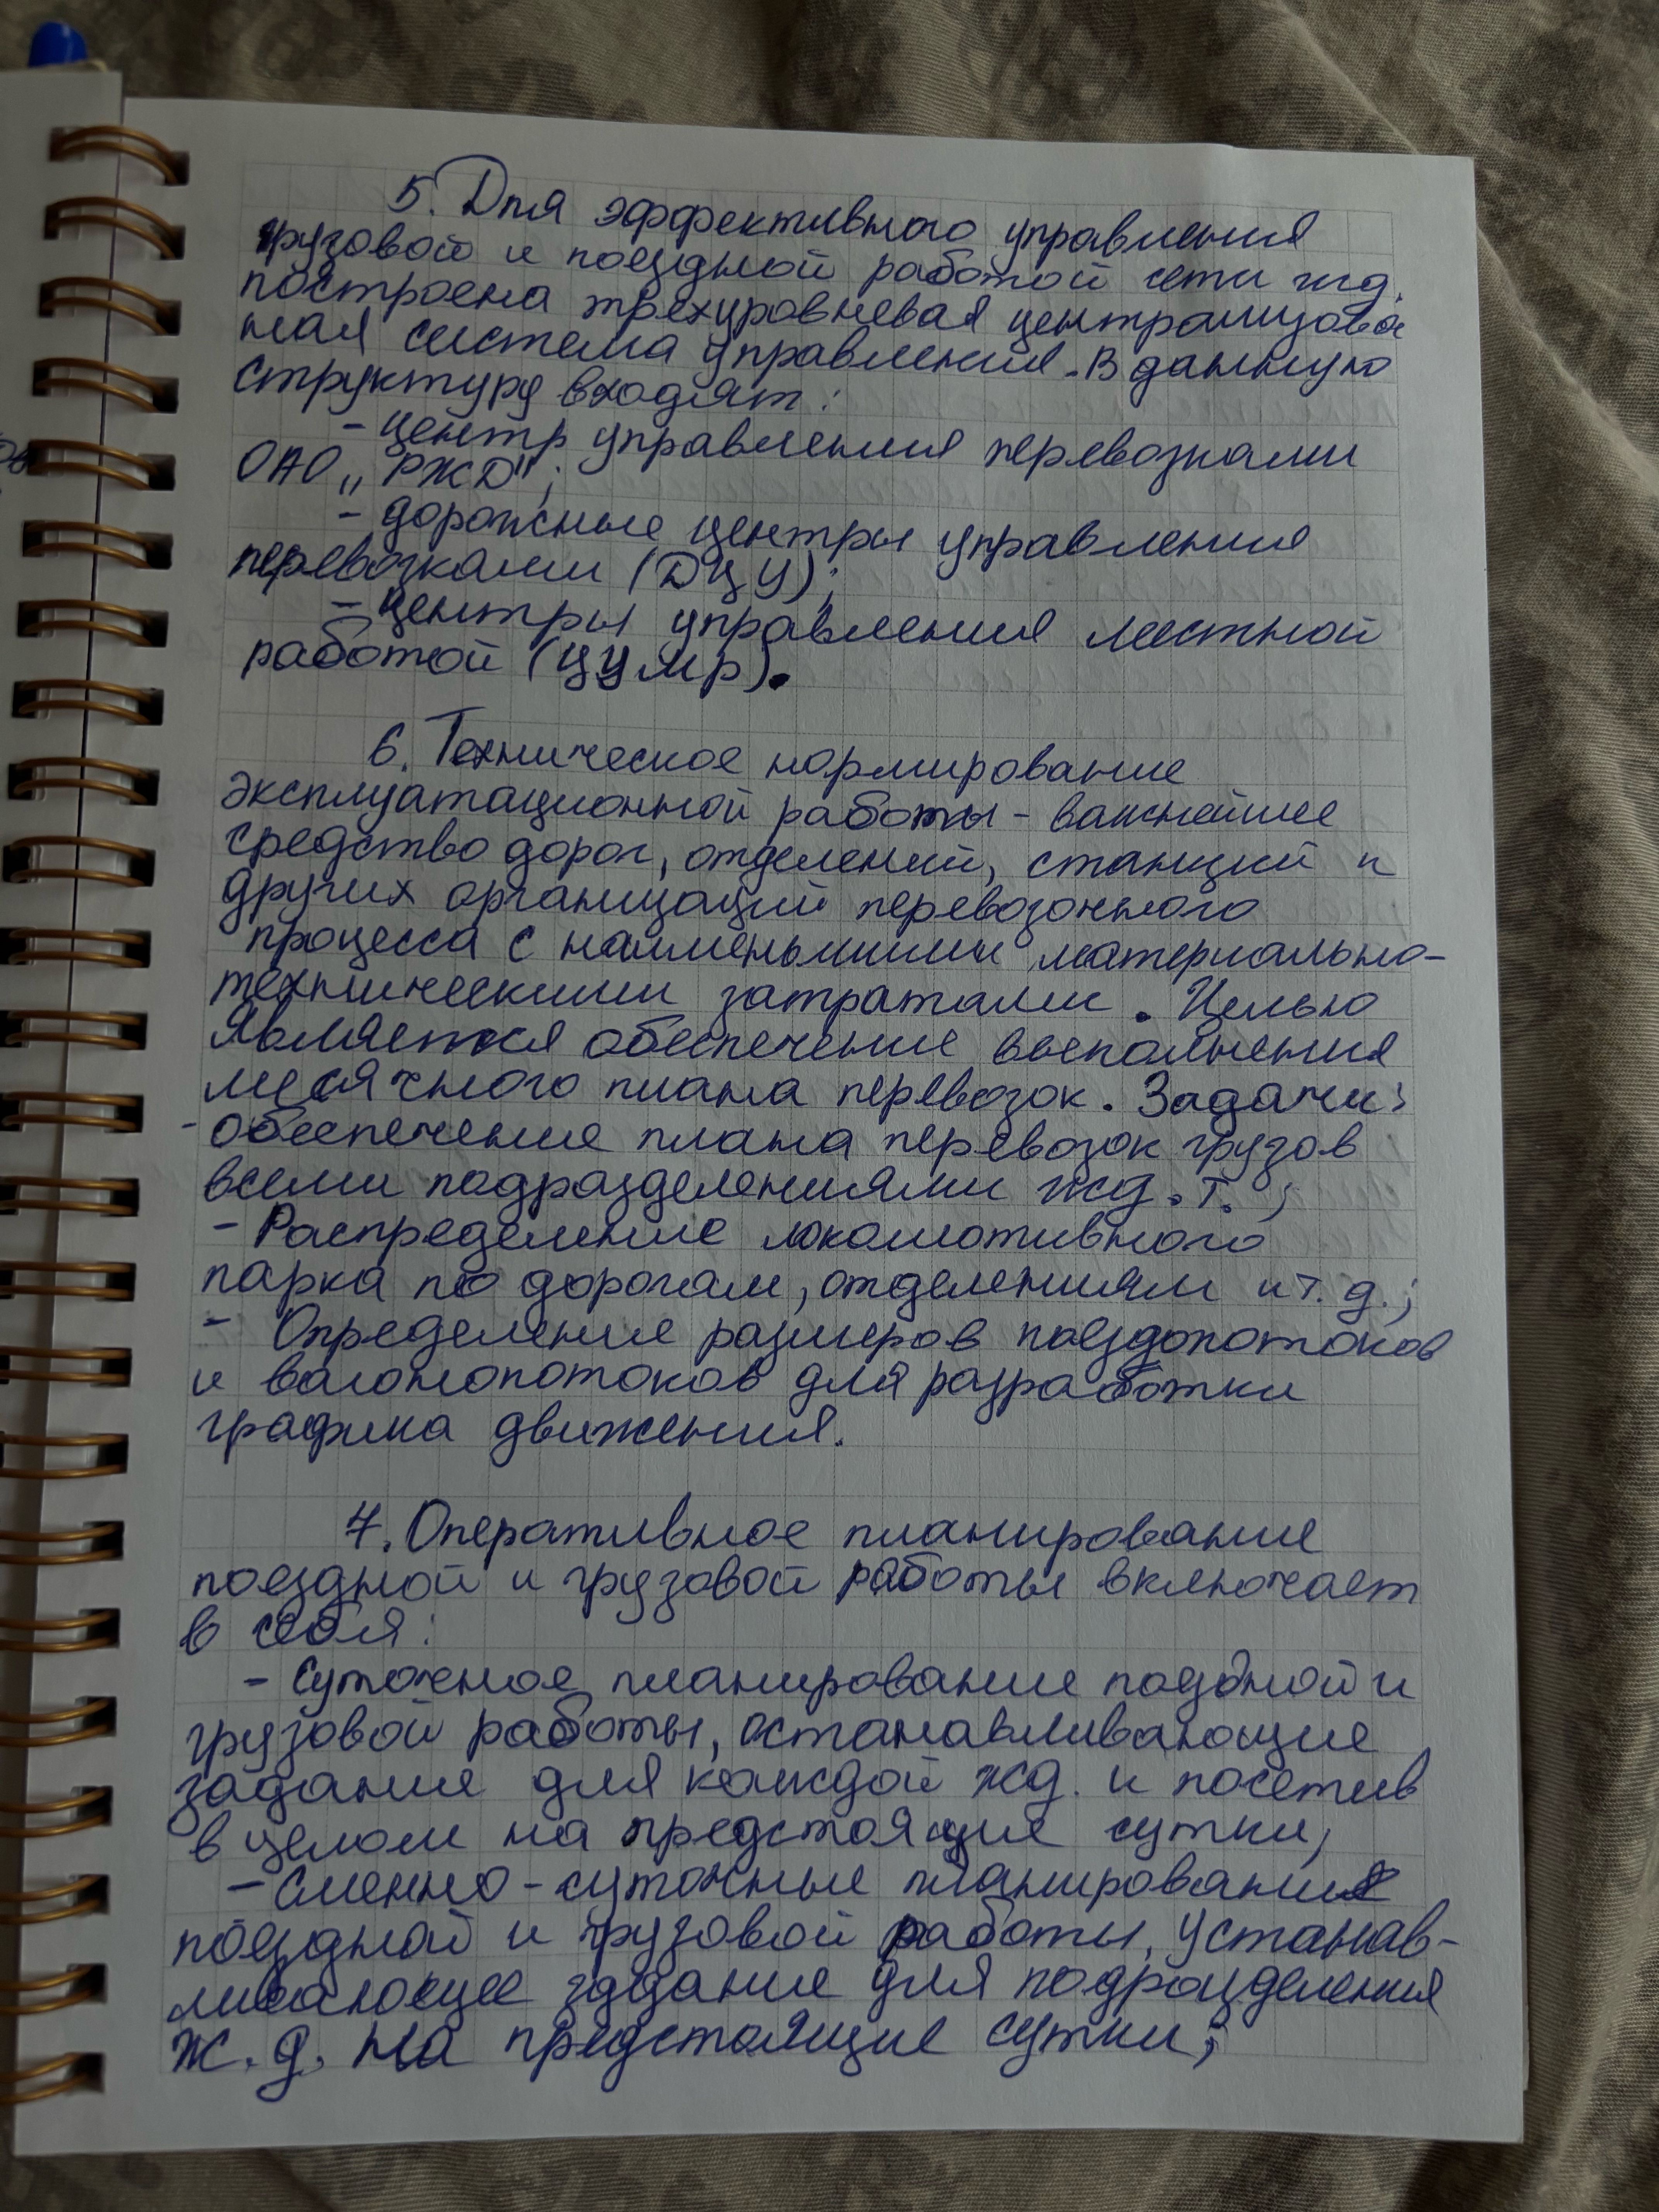 5. Для эффективного управления
грузовой и поездной работой сети жд.
построена трехуровневая централизова
ная система управления. В данную
структуру входят:
- центр управления перевозками
ОАО „РЖД";
- дорожные центры управления
перевозками (ДЦУ);
- центры управления местной
работой (ЦУМР).
6. Техническое нормирование
эксплуатационной работы - важнейшее
средство дорог, отделений, станций и
других организаций перевозочного
процесса с наименьшими материально-
техническими затратами. Целью
является обеспечение выполнения
месячного плана перевозок. Задачи:
- обеспечение плана перевозок грузов
всеми подразделениями жд.т.;
- Распределение локомотивного
парка по дорогам, отделениям и т.д.;
- Определение размеров поездопотоков
и вагонопотоков для разработки
графика движения.
7. Оперативное планирование
поездной и грузовой работы включает
в себя:
- суточное планирование поездной и
грузовой работы, останавливающие
задание для каждой жд. и посетив
в целом на предстоящие сутки;
- Сменно-суточные планирование
поездной и грузовой работы, устанав-
ливающее задание для подразделения
ж.д. на предстоящие сутки;